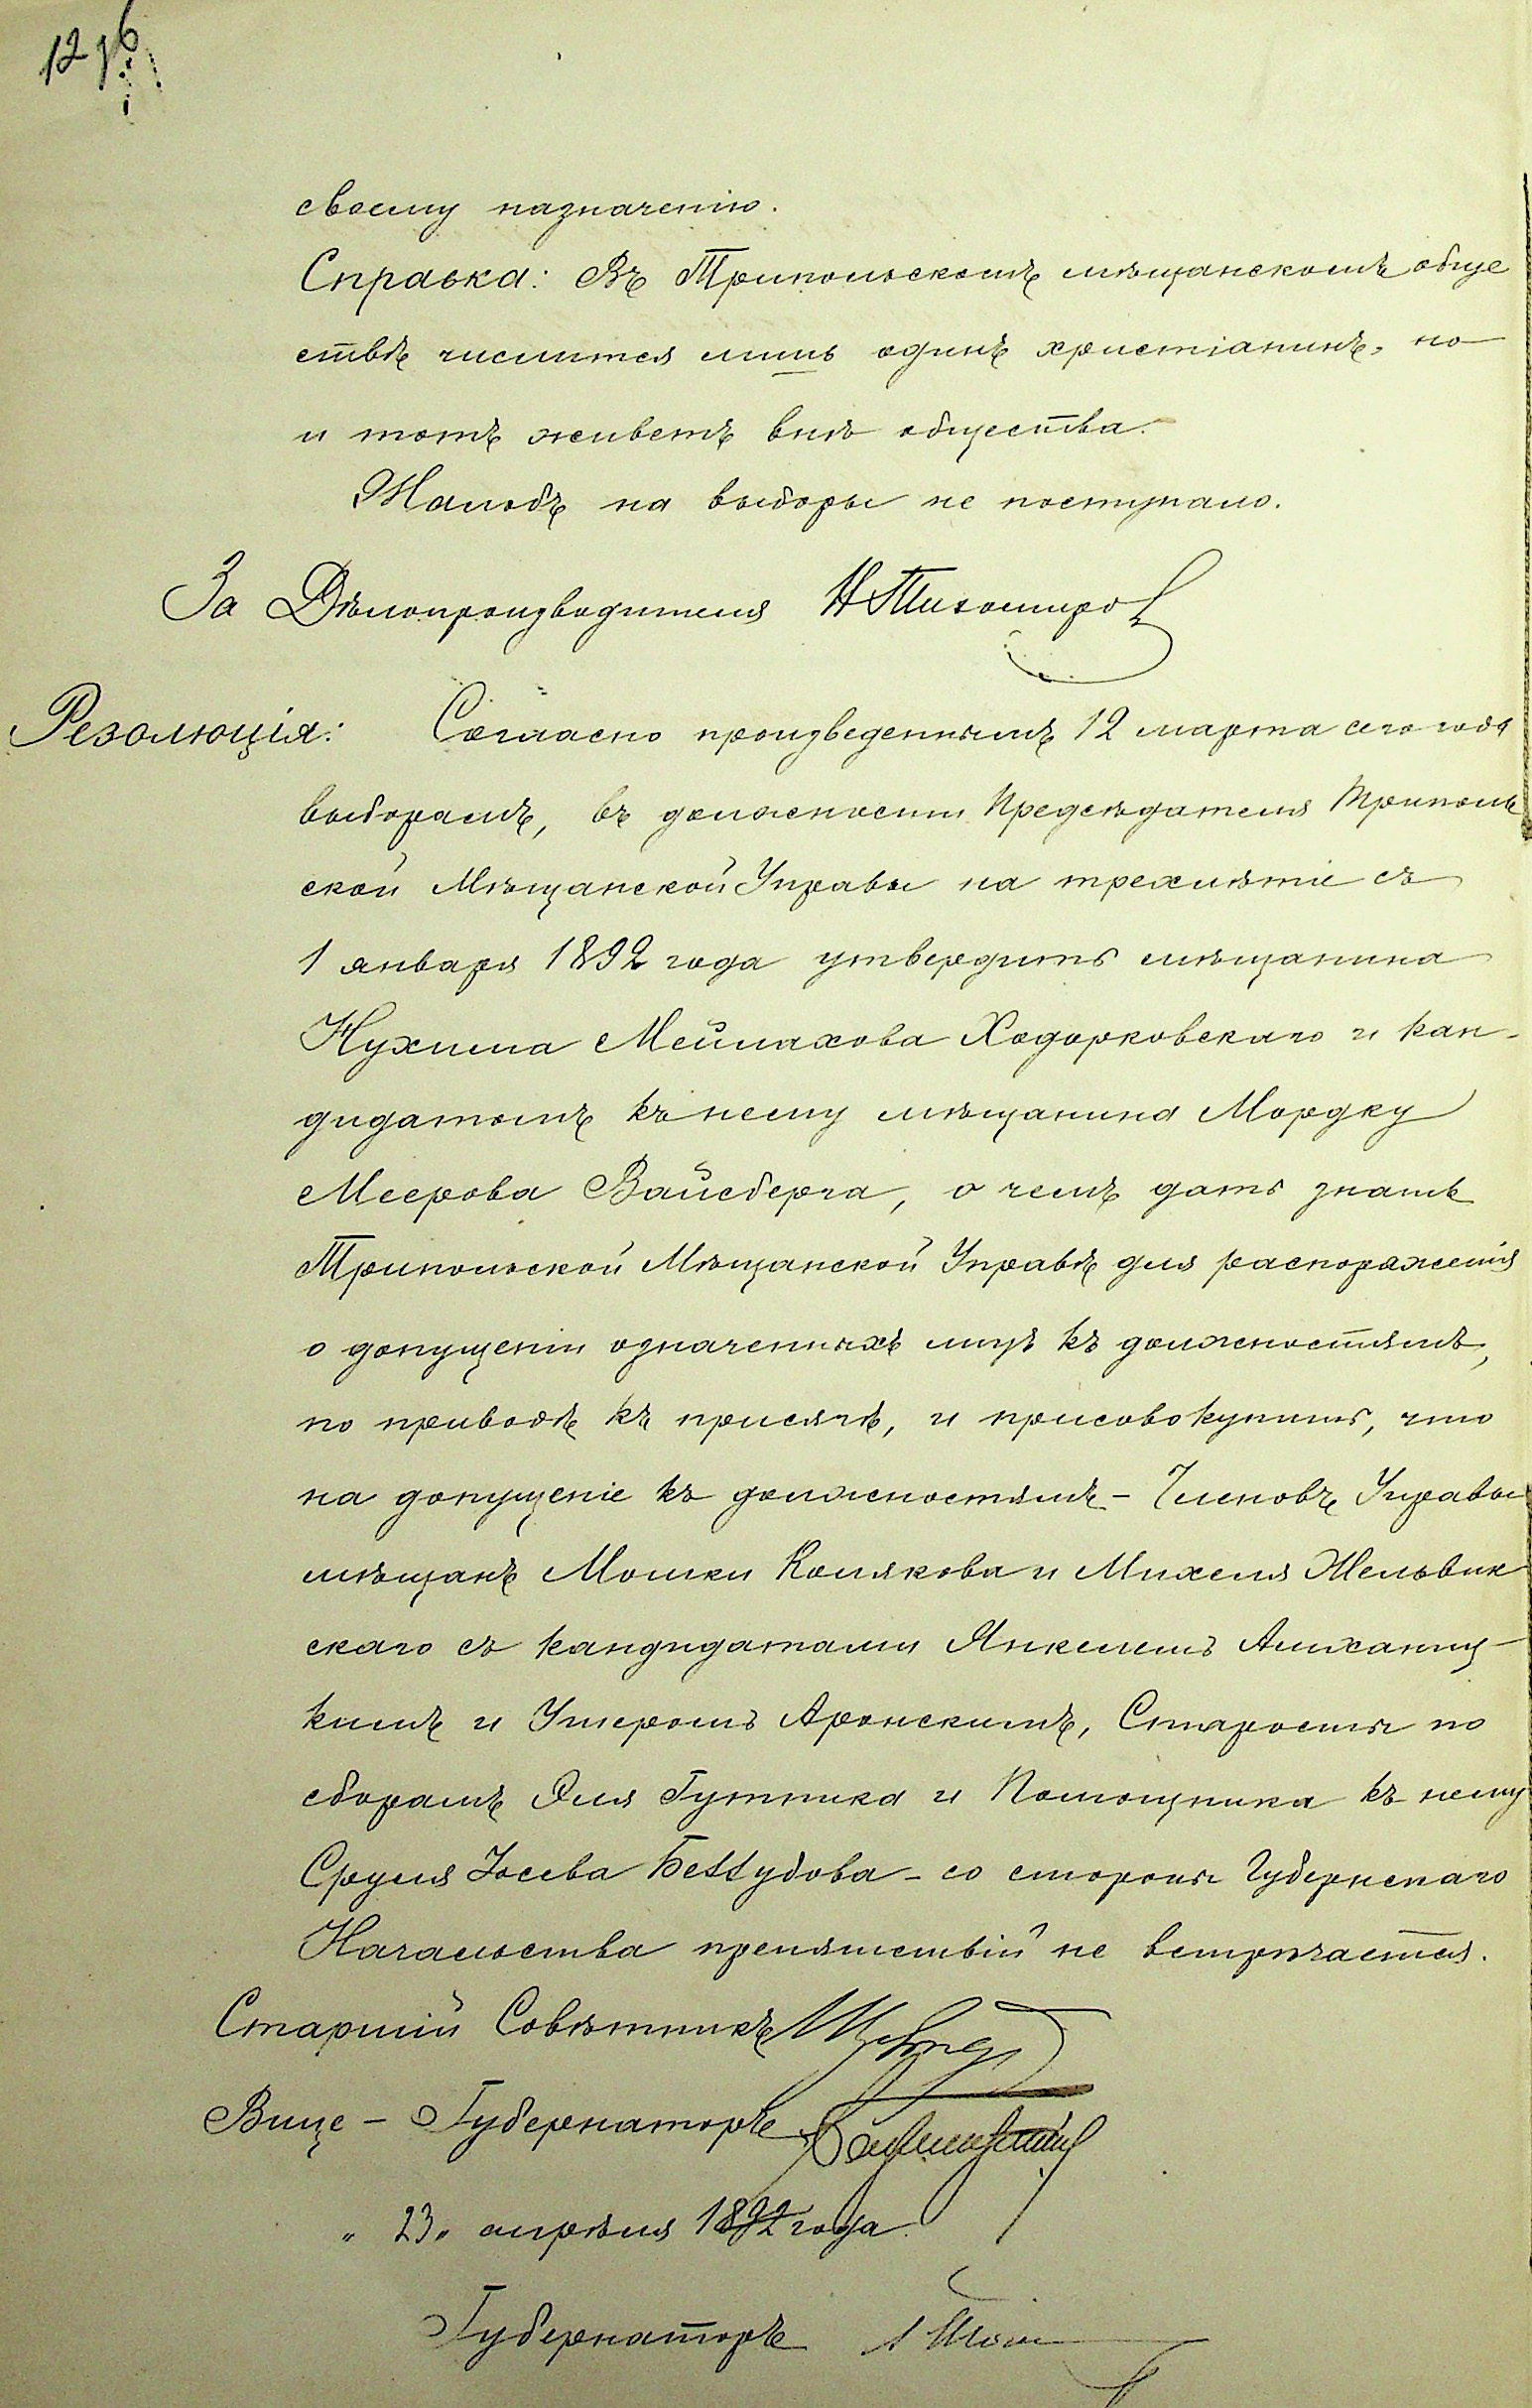 своему назначенію.
Справка: Въ Трипольскомъ мѣщанскомъ обще
ствѣ числится лишь одинъ христіанинъ, но
и тотъ живетъ внѣ общества.
Жалобъ на выборы не поступало.
За Дѣлопроизводителя Н Тихомиров
Резолюція: Согласно произведеннымъ 12 марта сего года
выборамъ, въ должности Предсѣдателя Триполь
ской Мѣщанской Управы на трехлѣтіе съ
1 января 1892 года утвердить мѣщанина
Нухима Мейлахова Ходорковскаго и кан-
дидатомъ къ нему мѣщанина Мордку
Меерова Вайсберга, о чемъ дать знать
Трипольской Мѣщанской Управѣ для распоряженія
о допущеніи означенныхъ лицъ къ должностямъ,
по приводѣ къ присягѣ, и присовокупить, что
на допущеніе къ должностямъ - Членовъ Управы
мѣщанъ Мошки Полякова и Михеля Жельвин
скаго съ кандидатами Янкелемъ
кимъ и Ушеромъ Аронскимъ, Старосты по
сборамъ Эля Гутника и Помощника къ нему
Сруля Іосева - со стороны Губернскаго
Начальства препятствій не встрѣчается.
Старшій Совѣтникъ
Вице - Губернаторъ
" 23 " апрѣля 1892 года.
Губернаторъ